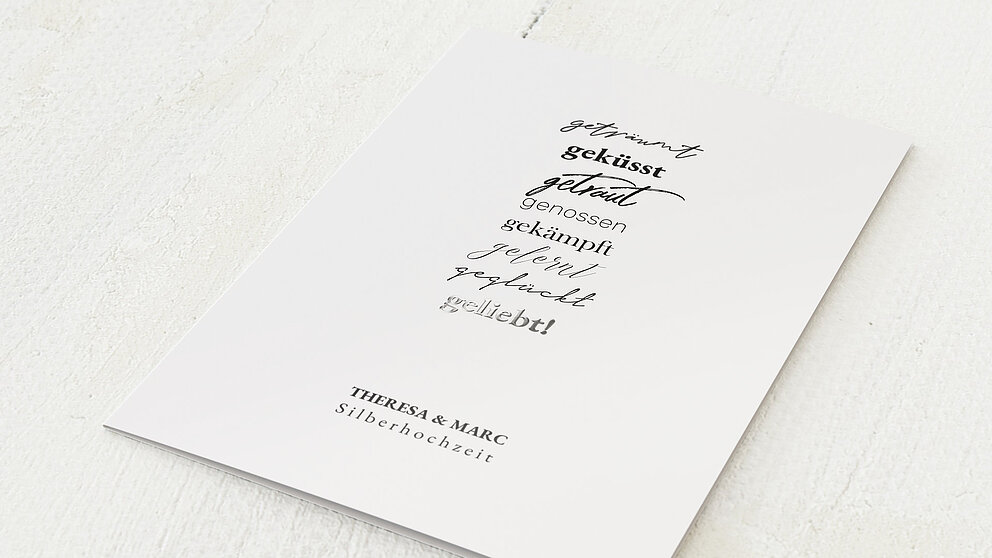 geträumt
geküsst
getraut
genossen
gekämpft
gelernt
geglückt
geliebt!
THERESA & MARC
Silberhochzeit